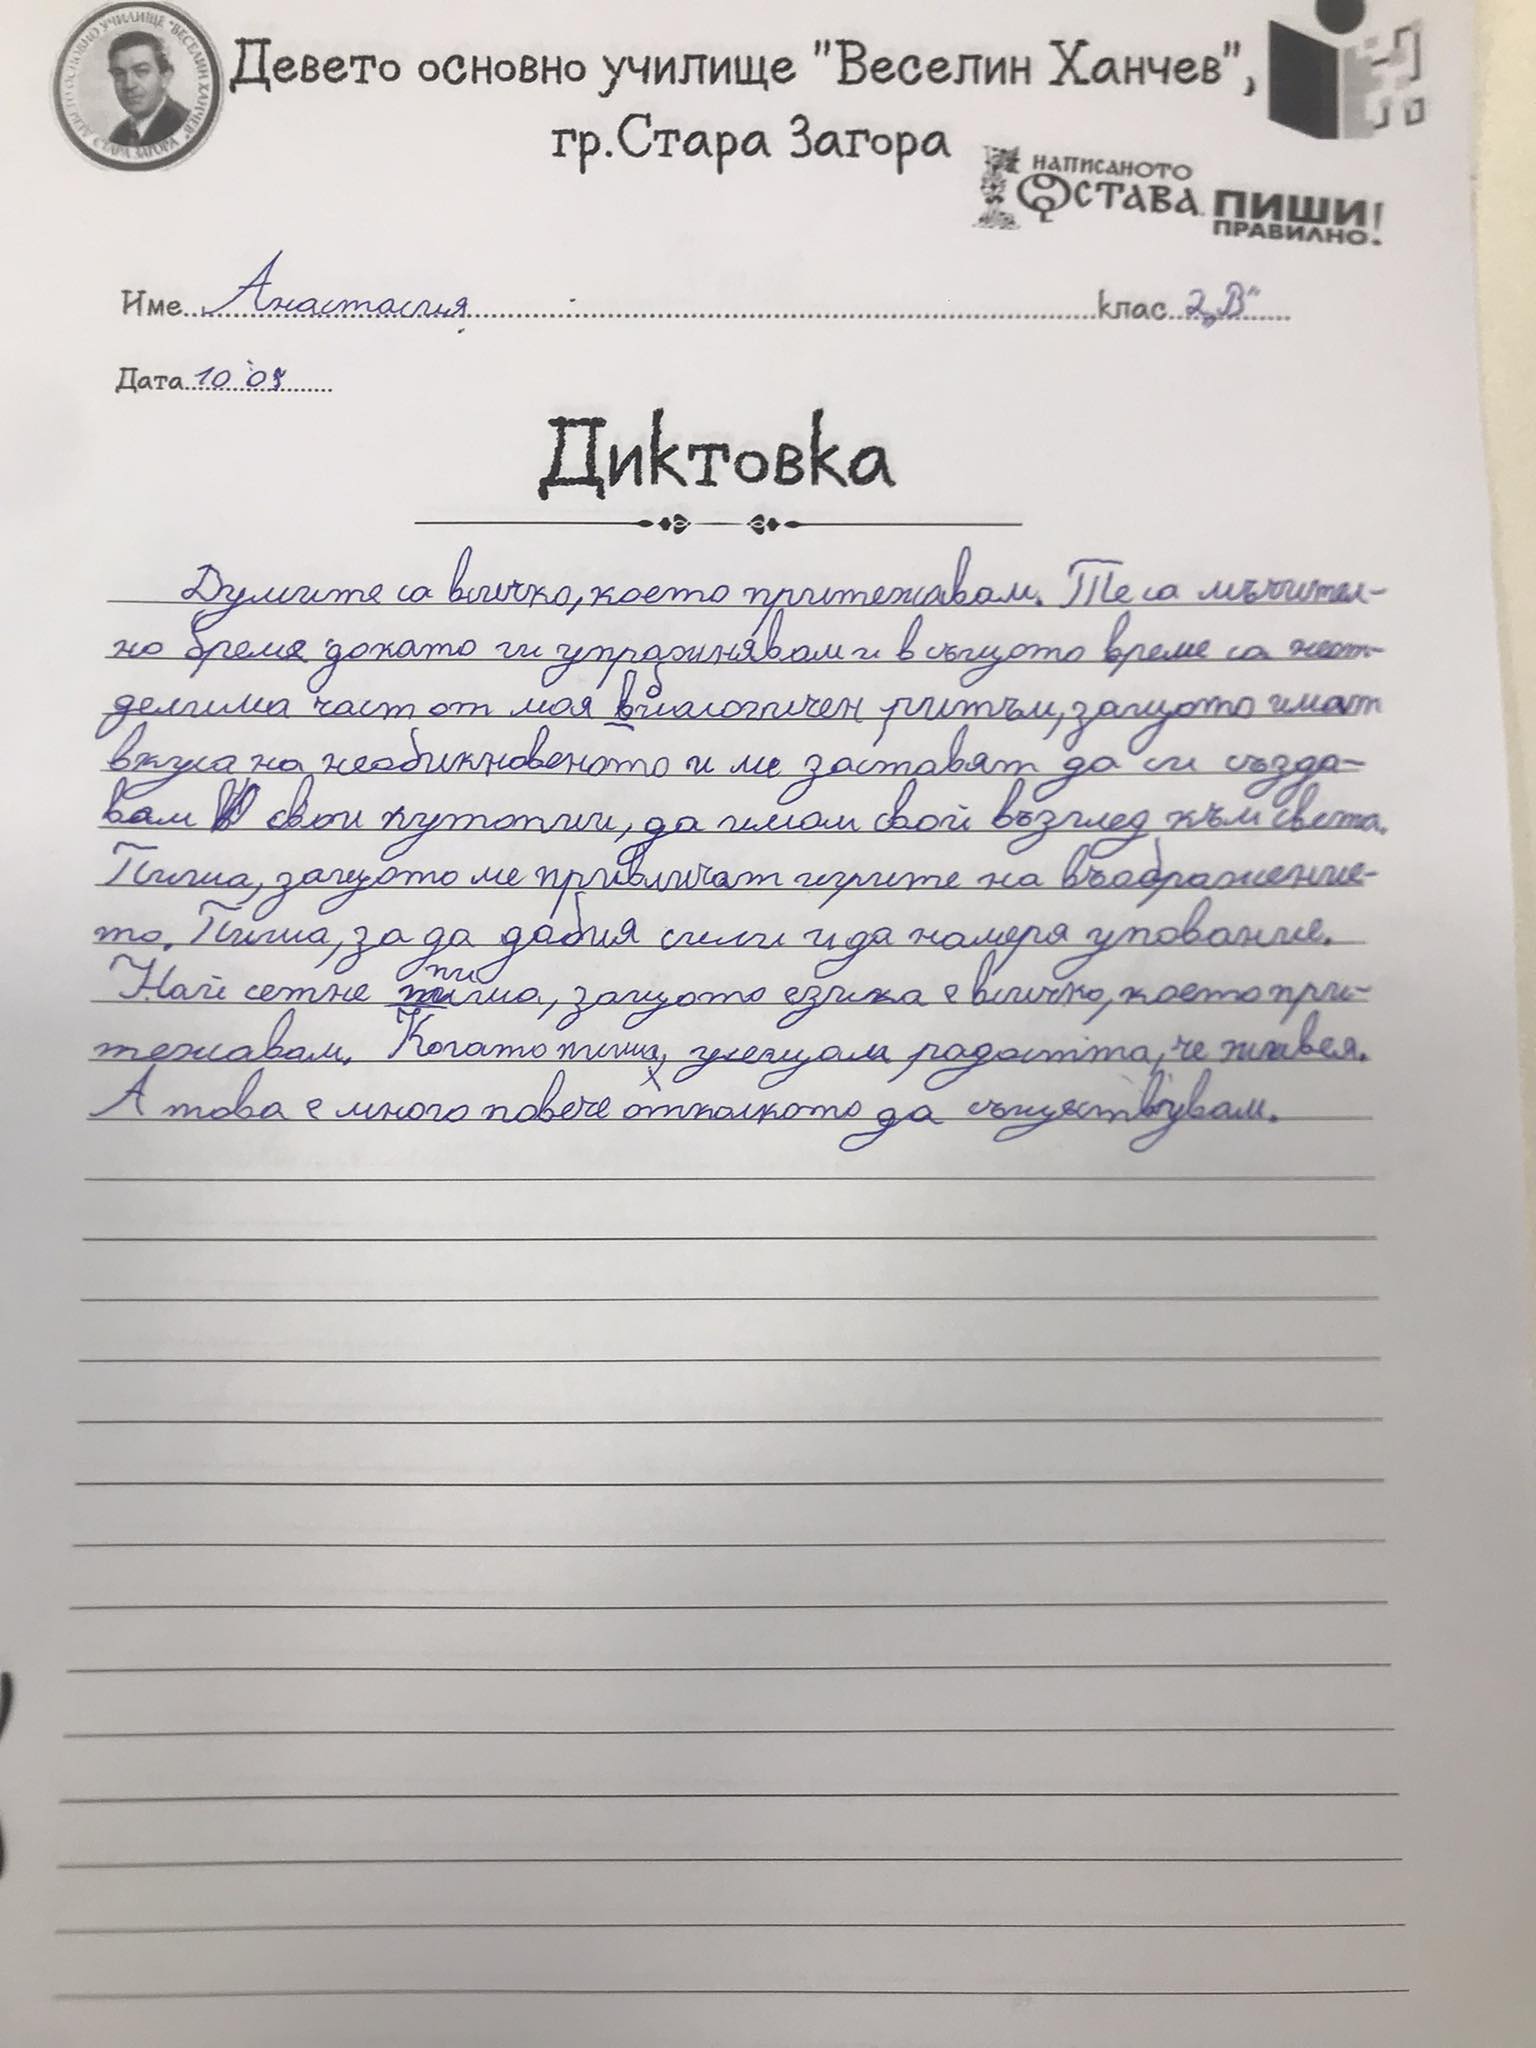 ДЕВЕТО ОСНОВНО УЧИЛИЩЕ "ВЕСЕЛИН ХАНЧЕВ" СТАРА ЗАГОРА
Девето основно училище "Веселин Ханчев",
гр.Стара Загора
НАПИСАНОТО
ОСТАВА. ПИШИ
ПРАВИЛНО!
Име Анастасия клас 2 „В“
Дата 10 05
Диктовка
Думите са всичко, което притежавам. Те са мъчител-
но бреме докато ги упражнявам и в същото време са неот-
делима част от моя биологичен ритъм, защото имат
вкуса на необикновеното и ме заставят да си създа-
вам свои утопии, да имам свой възглед към света.
Пиша, защото ме привличат игрите на въображение-
то. Пиша, за да добия сили и да намеря упование.
Най сетне пиша, защото езика е всичко, което при-
тежавам. Когато пиша, усещам радостта, че живея.
А това е много повече отколкото да съществувам.